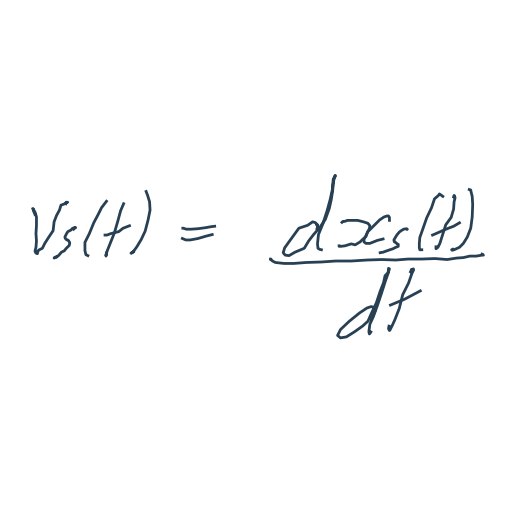 V_s(t) = \frac{dx_s(t)}{dt}